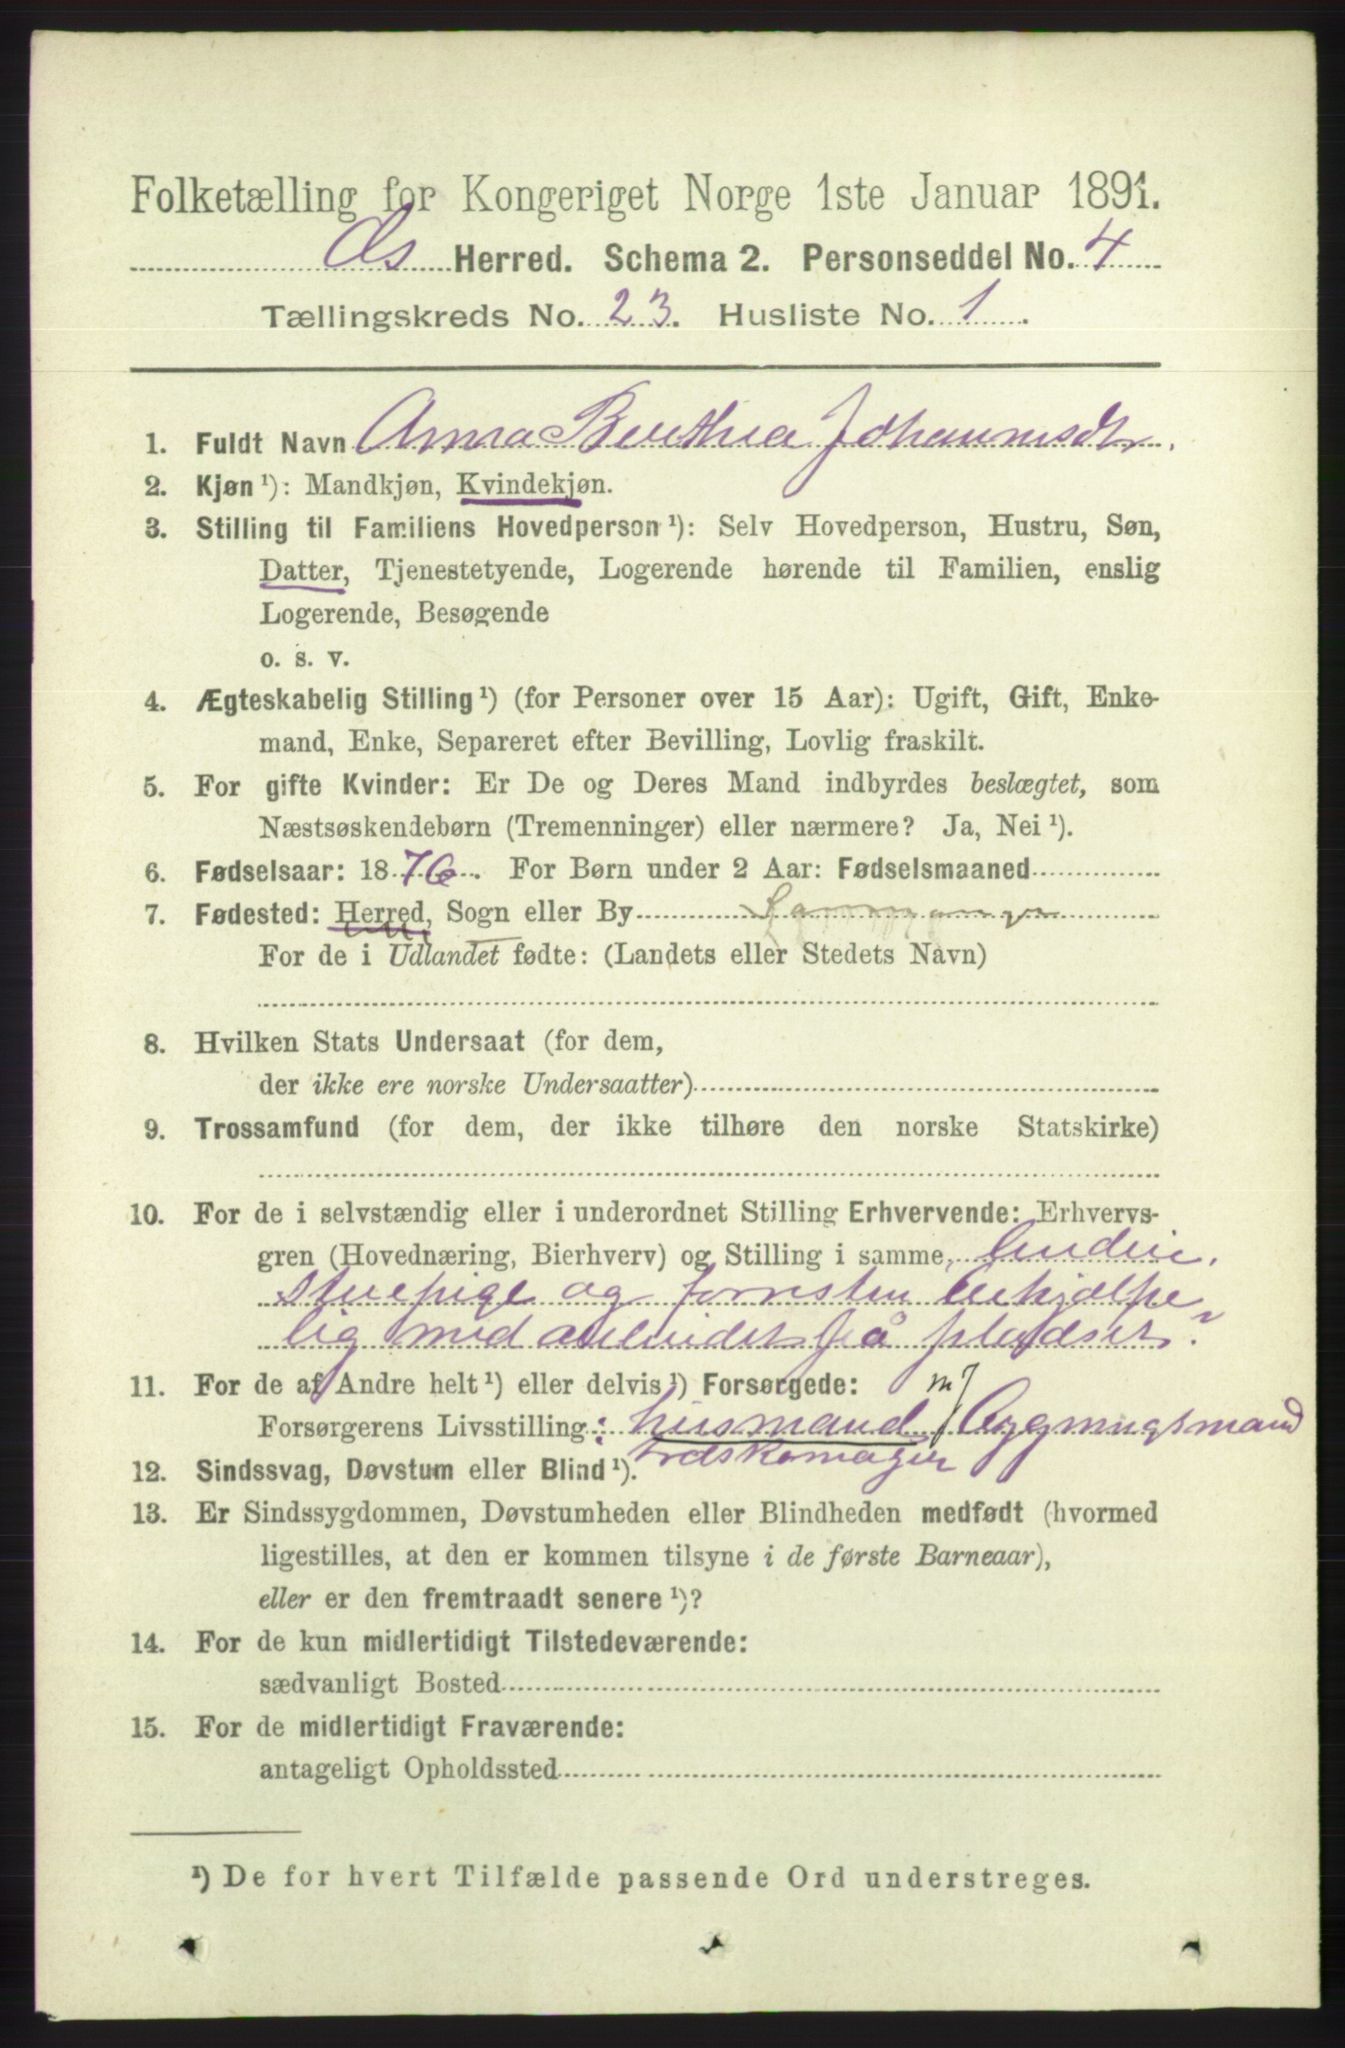 Folketælling for Kongeriget Norge 1ste Januar 1891.
Os Herred. Schema 2. Personseddel No. 4
Tællingskreds No. 23. Husliste No. 1.
1. Fuldt Navn Anna Berthea Johannesdtr.
2. Kjøn ¹): Mandkjøn, Kvindekjøn.
3. Stilling til Familiens Hovedperson ¹): Selv Hovedperson, Hustru, Søn,
Datter, Tjenestetyende, Logerende hørende til Familien, enslig
Logerende, Besøgende
o. s. v.
4. Ægteskabelig Stilling ¹) (for Personer over 15 Aar): Ugift, Gift, Enke-
mand, Enke, Separeret efter Bevilling, Lovlig fraskilt.
5. For gifte Kvinder: Er De og Deres Mand indbyrdes beslægtet, som
Næstsøskendebørn (Tremenninger) eller nærmere? Ja, Nei ¹).
6. Fødselsaar: 1876. For Børn under 2 Aar: Fødselsmaaned
7. Fødested: Herred, Sogn eller By
For de i Udlandet fødte: (Landets eller Stedets Navn)
8. Hvilken Stats Undersaat (for dem,
der ikke ere norske Undersaatter)
9. Trossamfund (for dem, der ikke tilhøre den norske Statskirke)
10. For de i selvstændig eller i underordnet Stilling Erhvervende: Erhvervs-
gren (Hovednæring, Bierhverv) og Stilling i samme,
stuepige og forresten behjælpe
lig med arbeidet på pladset
11. For de af Andre helt ¹) eller delvis ¹) Forsørgede:
Forsørgerens Livsstilling: husmand m/ bygningsmand
12. Sindssvag, Døvstum eller Blind ¹).
13. Er Sindssygdommen, Døvstumheden eller Blindheden medfødt (hvormed
ligestilles, at den er kommen tilsyne i de første Barneaar),
eller er den fremtraadt senere ¹)?
14. For de kun midlertidigt Tilstedeværende:
sædvanligt Bosted
15. For de midlertidigt Fraværende:
antageligt Opholdssted
¹) De for hvert Tilfælde passende Ord understreges.